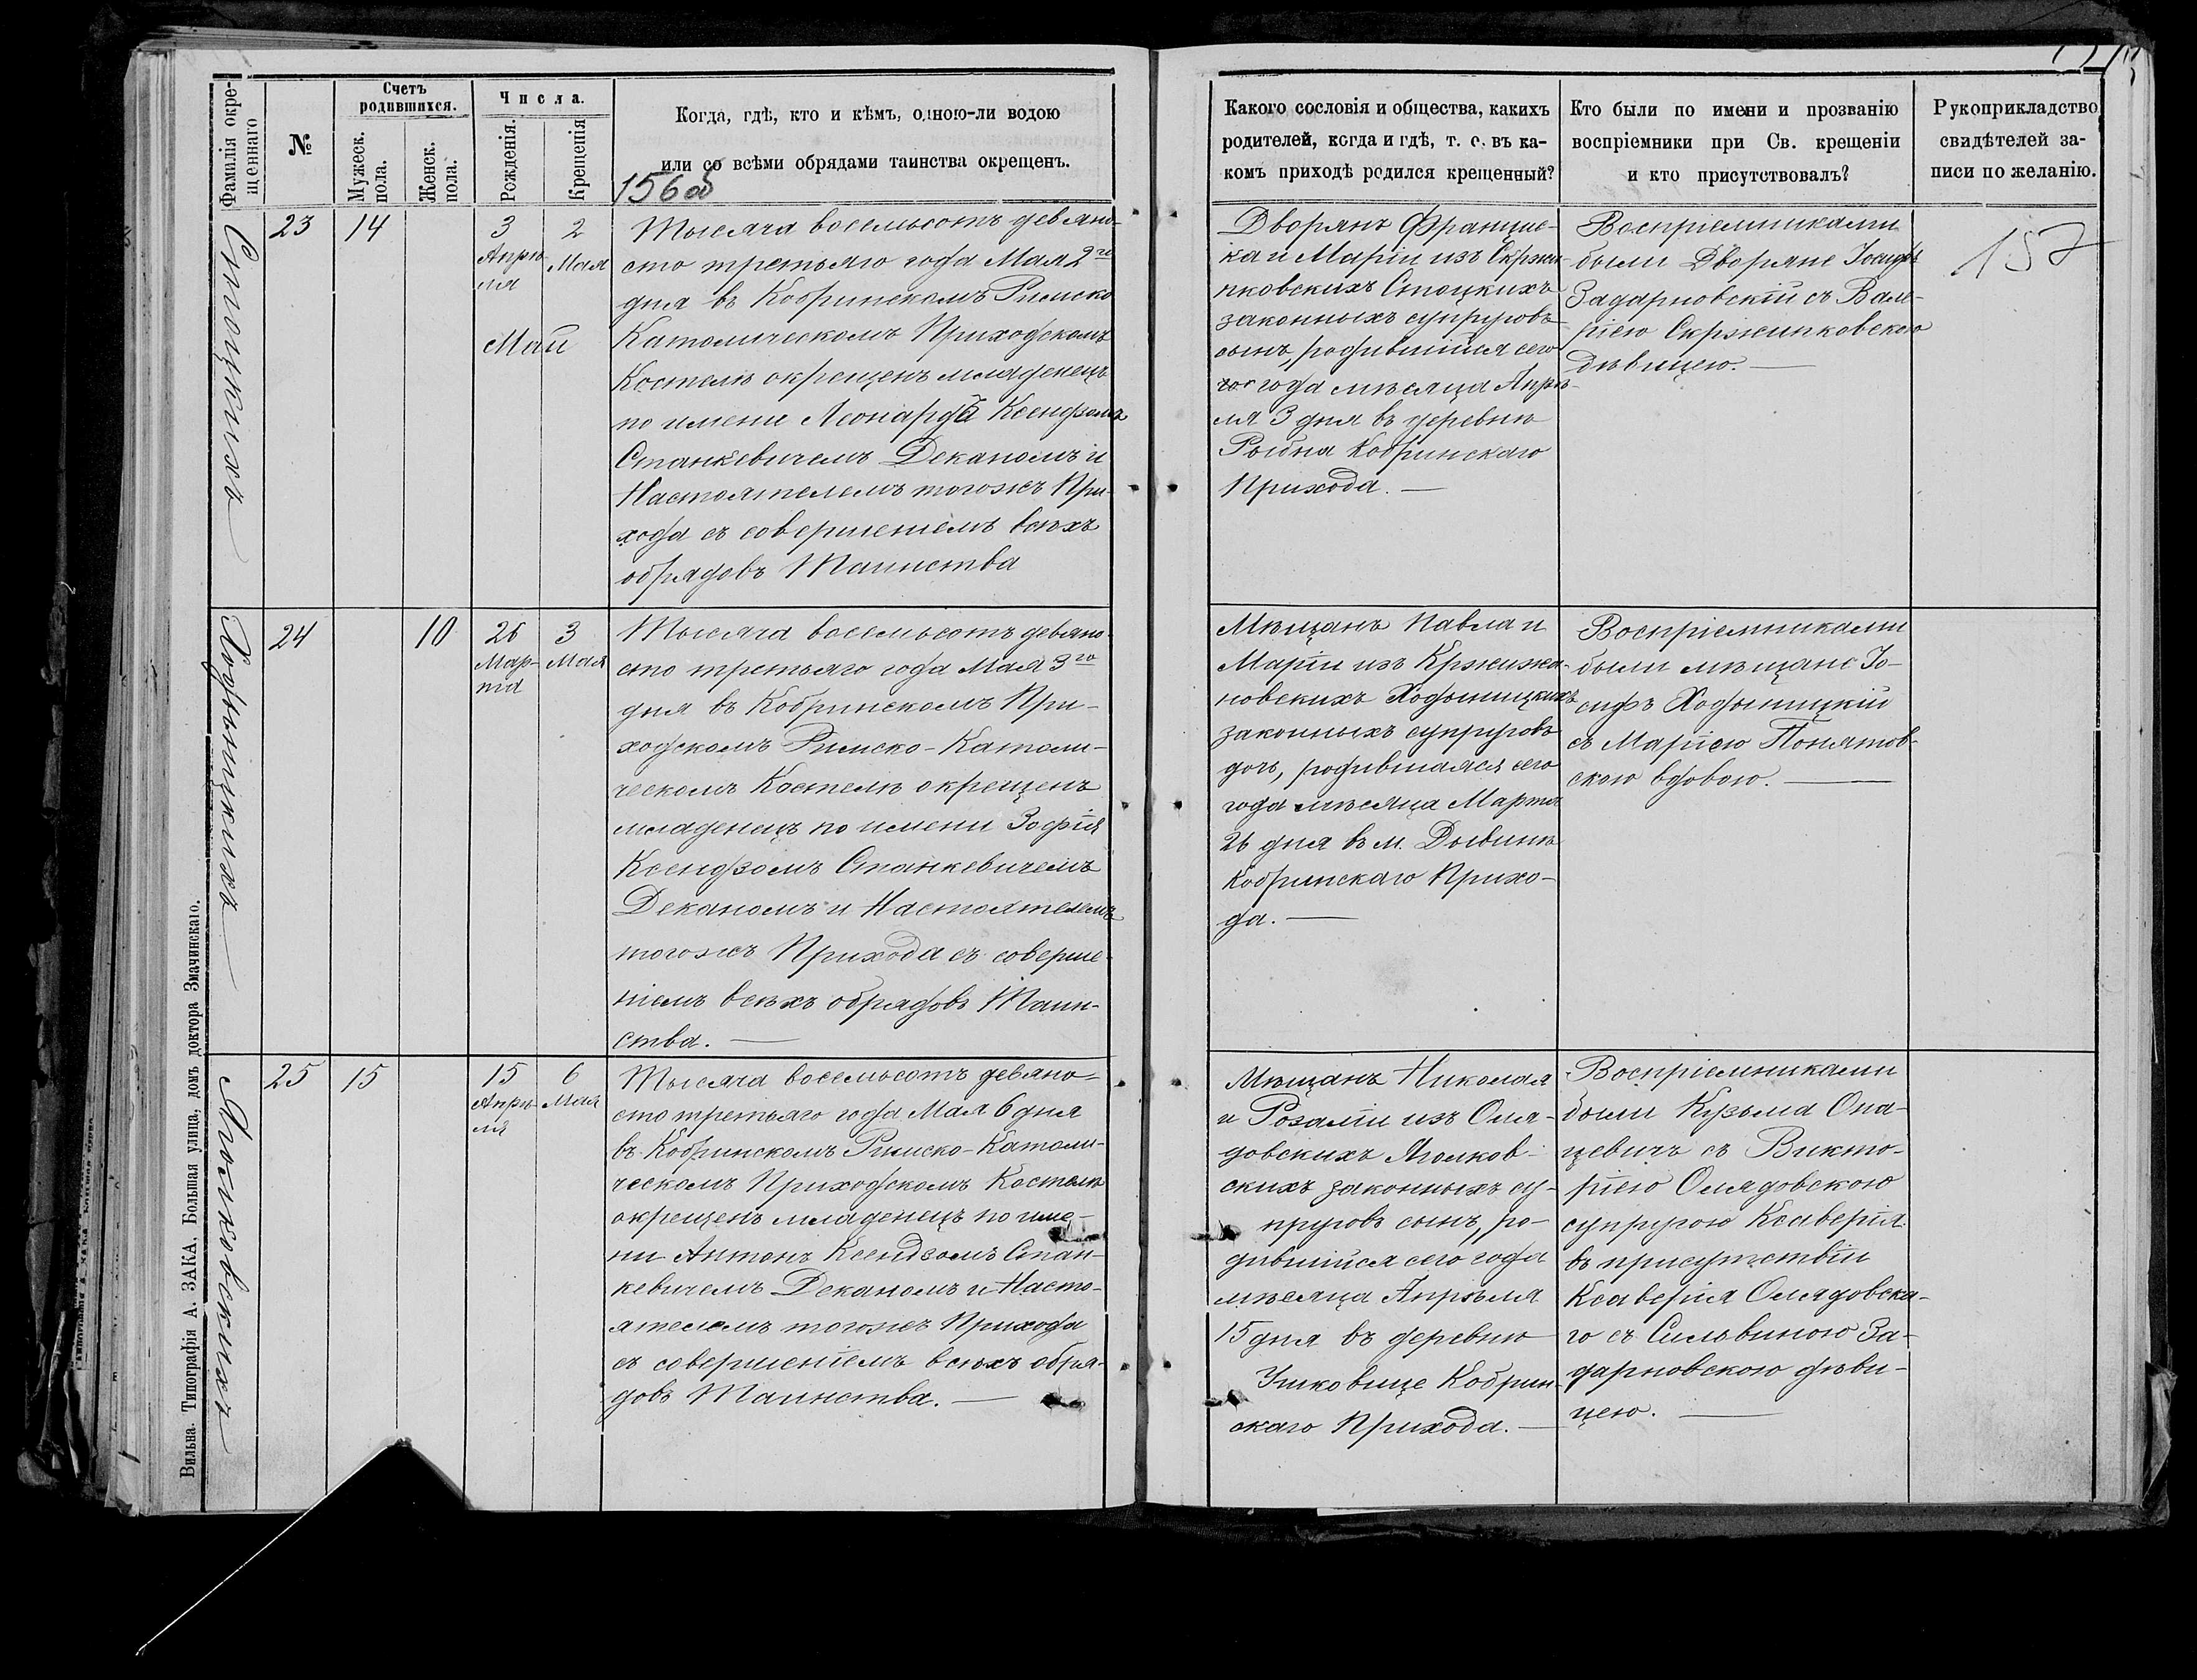 Фамилія окре-
щеннаго
№
Счетъ
родившихся.
Мужеск.
пола.
Женск.
пола.
Числа.
Рожденія.
Крещенія
Когда, гдѣ, кто и кѣмъ, одною-ли водою
или со всѣми обрядами таинства окрещенъ.
156 об
Какого сословія и общества, какихъ
родителей, когда и гдѣ, т. е. въ ка-
комъ приходѣ родился крещенный?
Кто были по имени и прозванію
воспріемники при Св. крещеніи
и кто присутствовалъ?
Рукоприкладство
свидѣтелей за-
писи по желанію.
157
Стоцкихъ
23
14
3
Апрѣ-
ля
2
Мая
Май
Тысяча восемьсотъ девяно-
сто третьяго года Мая 2го
дня въ Кобринскомъ Римско
Католическомъ Приходскомъ
Костелѣ окрещенъ младенецъ
по имени Леонардъ Ксендзомъ
Станкевичемъ Деканомъ и
Настоятелемъ тогожъ При-
хода съ совершеніемъ всѣхъ
обрядовъ Таинства
Дворянъ Францис-
ка и Маріи изъ Скржи-
пковскихъ Стоцкихъ
законныхъ супруговъ
сынъ, родившійся сего
года мѣсяца Апрѣ-
ля 3 дня въ деревнѣ
Рыбна Кобринскаго
Прихода. —
Воспріемниками
были Дворяне Іосифъ
Задарновскій съ Вале-
ріею Скржипковскою
дѣвицею. —
Ходыницкихъ
24
10
26
Мар-
та
3
Мая
Тысяча восемьсотъ девяно-
сто третьяго года Мая 3го
дня въ Кобринскомъ При-
ходскомъ Римско-Католи-
ческомъ Костелѣ окрещенъ
младенецъ по имени Зофія
Ксендзомъ Станкевичемъ
Деканомъ и Настоятелемъ
тогожъ Прихода съ соверше-
ніемъ всѣхъ обрядовъ Таин-
ства. —
Мѣщанъ Павла и
Маріи изъ Кржижа-
новскихъ Ходыницкихъ
законныхъ супруговъ
дочь, родившаяся сего
года мѣсяца Марта
26 дня въ м. Дывинѣ
Кобринскаго Прихо-
да. —
Воспріемниками
были мѣщане Іо-
сифъ Ходыницкій
съ Маріею Понятов-
скою вдовою. —
Яголковскихъ
25
15
15
Апрѣ-
ля
6
Мая
Тысяча восемьсотъ девяно-
сто третьяго года Мая 6 дня
въ Кобринскомъ Римско-Католи-
ческомъ Приходскомъ Костелѣ
окрещенъ младенецъ по име-
ни Антонъ Ксендзомъ Стан-
кевичемъ Деканомъ и Насто-
ятелемъ тогожъ Прихода
съ совершеніемъ всѣхъ обря-
довъ Таинства. —
Мѣщанъ Николая
и Розаліи изъ Оля-
довскихъ Яголков-
скихъ законныхъ су-
пруговъ сынъ, ро-
дившійся сего года
мѣсяца Апрѣля
15 дня въ деревнѣ
Ушковице Кобрин-
скаго Прихода. —
Воспріемниками
были Кузьма Опа-
цевичъ съ Викто-
ріею Олядовскою
супругою Ксаверія
въ присутствіи
Ксаверія Олядовска-
го съ Сильвиною За-
дарновскою дѣви-
цею. —
Вильна. Типографія А. ЗАКА. Большая улица, домъ доктора Змачинскаго.